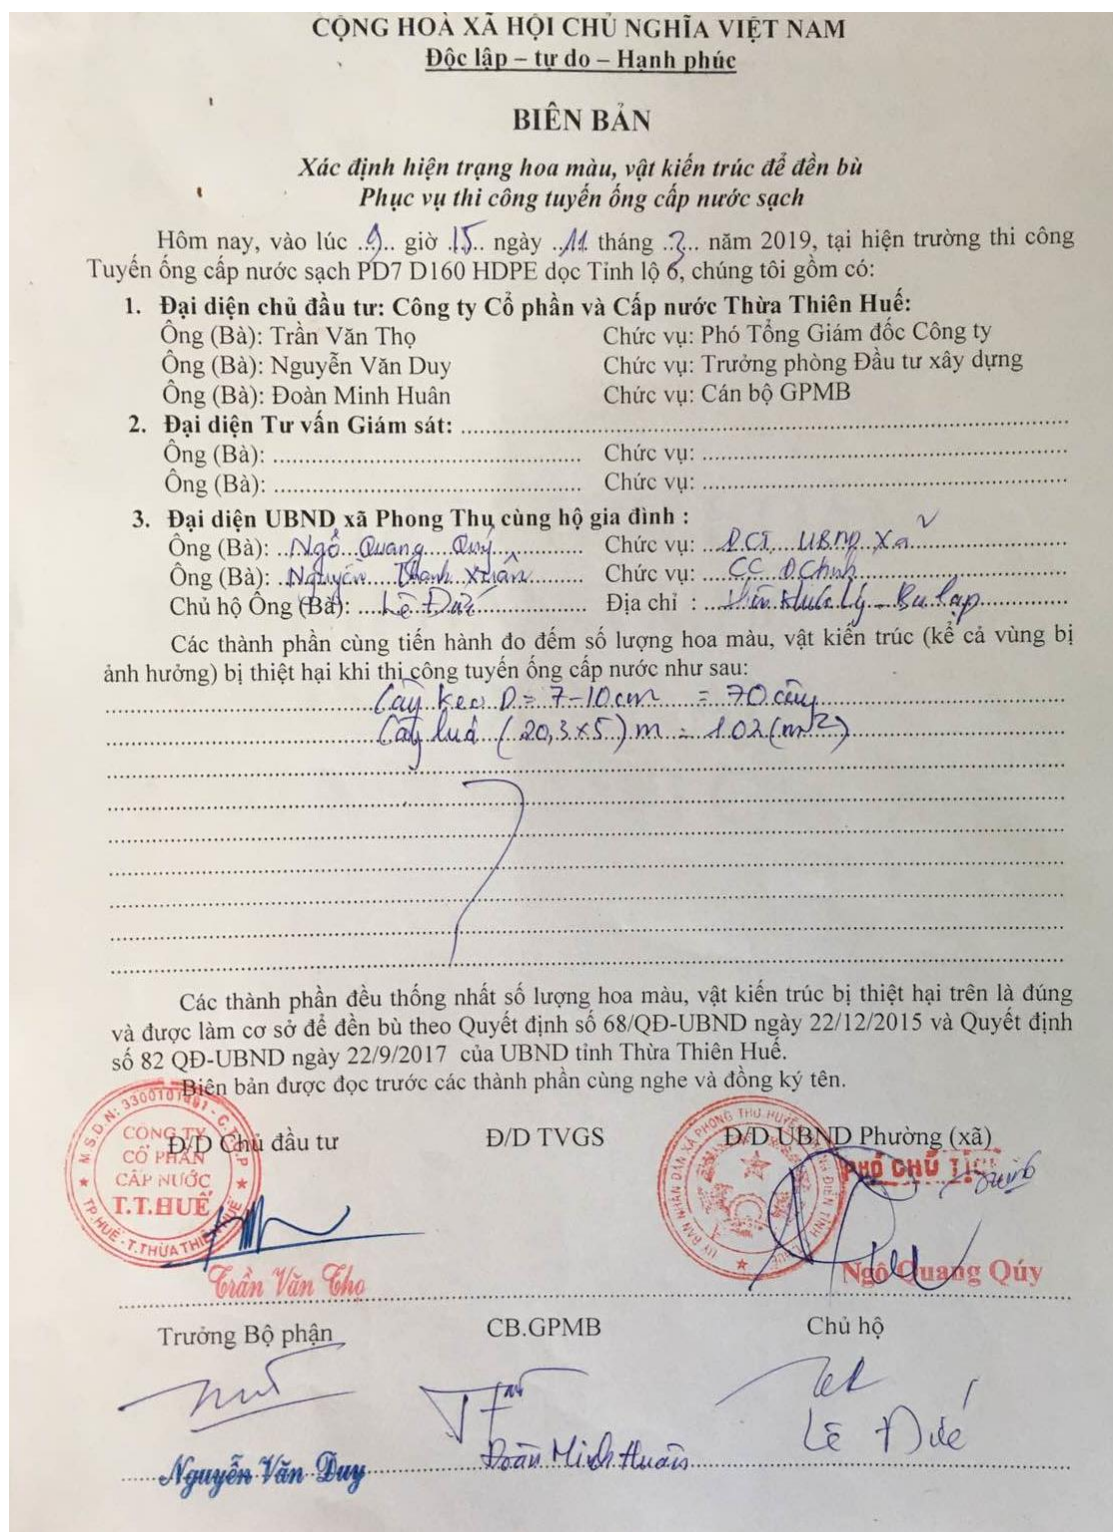 CỘNG HOÀ XÃ HỘI CHỦ NGHĨA VIỆT NAM
Độc lập – tự do – Hạnh phúc
BIÊN BẢN
Xác định hiện trạng hoa màu, vật kiến trúc để đền bù
Phục vụ thi công tuyến ống cấp nước sạch
Hôm nay, vào lúc 9 giờ 15 ngày 11 tháng 3 năm 2019, tại hiện trường thi công
Tuyến ống cấp nước sạch PD7 D160 HDPE dọc Tỉnh lộ 6, chúng tôi gồm có:
1. Đại diện chủ đầu tư: Công ty Cổ phần và Cấp nước Thừa Thiên Huế:
Ông (Bà): Trần Văn Thọ Chức vụ: Phó Tổng Giám đốc Công ty
Ông (Bà): Nguyễn Văn Duy Chức vụ: Trưởng phòng Đầu tư xây dựng
Ông (Bà): Đoàn Minh Huân Chức vụ: Cán bộ GPMB
2. Đại diện Tư vấn Giám sát:
Ông (Bà): Chức vụ:
Ông (Bà): Chức vụ:
3. Đại diện UBND xã Phong Thu cùng hộ gia đình :
Ông (Bà): Ngô Quang Quý Chức vụ: P.CT UBND Xã
Ông (Bà): Nguyễn Thanh Xuân Chức vụ: CC Đ.Chính
Chủ hộ Ông (Bà): Lê Đưế Địa chỉ :
Các thành phần cùng tiến hành đo đếm số lượng hoa màu, vật kiến trúc (kể cả vùng bị
ảnh hưởng) bị thiệt hại khi thi công tuyến ống cấp nước như sau:
Cây keo D = 7-10cm = 70 cây
Cây luá (20,3x5)m = 102 (m2)
Các thành phần đều thống nhất số lượng hoa màu, vật kiến trúc bị thiệt hại trên là đúng
và được làm cơ sở để đền bù theo Quyết định số 68/QĐ-UBND ngày 22/12/2015 và Quyết định
số 82 QĐ-UBND ngày 22/9/2017 của UBND tỉnh Thừa Thiên Huế.
Biên bản được đọc trước các thành phần cùng nghe và đồng ký tên.
Đ/D Chủ đầu tư Đ/D TVGS Đ/D UBND Phường (xã)
CÔNG TY
CỔ PHẦN
CẤP NƯỚC
T.T.HUẾ
PHÓ CHỦ TỊCH
Trần Văn Thọ Ngô Quang Qúy
Trưởng Bộ phận CB.GPMB Chủ hộ
Nguyễn Văn Duy Đoàn Minh Huân Lê Đưế